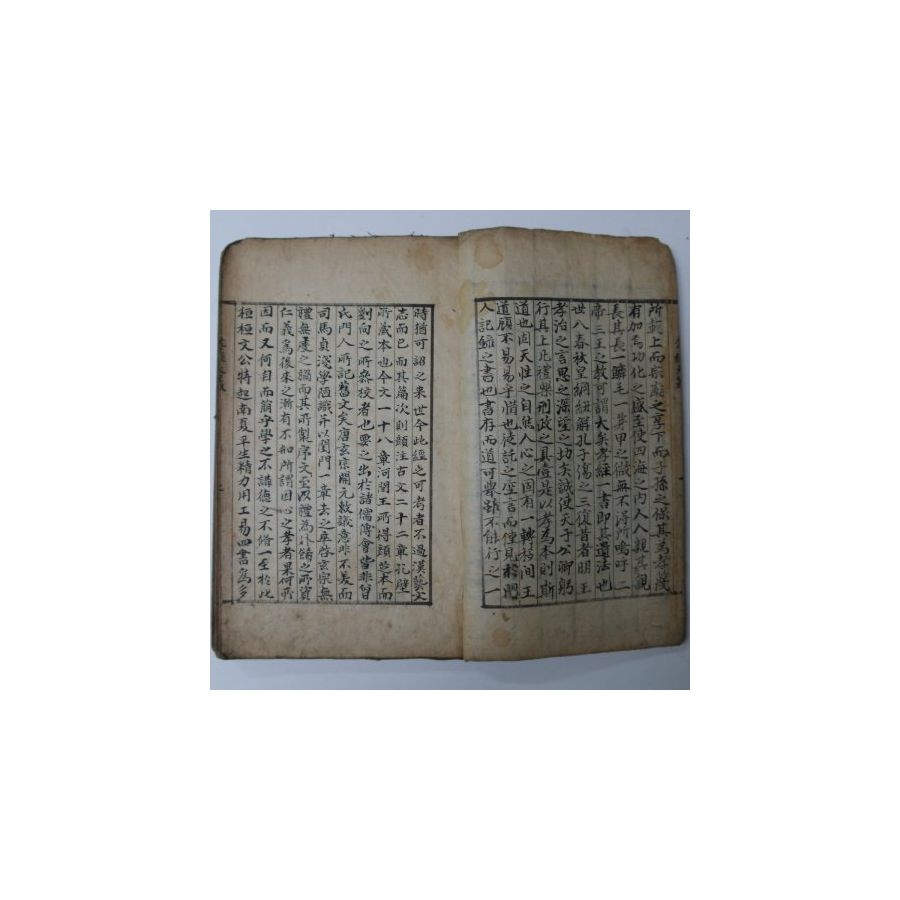 所謂上而宗廟之享下而子孫之保其為孝茂
有加為功化之盛至使四海之内人人親其親
長其長一購毛一芽甲之微無不得所嗚呼二
帝三王之教可謂大矣孝經一書即其遺法也
世入春秋皇綱紐解孔子傷之三復昔者明王
孝治之言思之深望之切矣誠使天子公卿躬
行其上凡禮樂刑政之具壹是以孝為本則斯
道也固天性之自然人心之固有一轉移間王
道顧不易易乎惜也徒託之空言而僅見於門
人記錄之書也書存而道可舉雖不能行之一
時猶可詔之来世今此經之可考者不過漢藝文
志而已而其篇次則顔注古文二十二章孔壁
所藏本也今文一十八章河間王所得顔芝本而
劉向之所叅校者也要之出於諸儒傅會皆非曾
氏門人所記舊文矣唐玄宗開元敕議意非不美而
司馬貞淺學陋識并以閨門一章去之卒啓玄宗無
禮無度之禍而其所製序文至以禮為外飾之所資
仁義為後來之漸有不知所謂因心之孝者果何所
因而又何自而萌乎學之不講德之不脩一至於此
桓桓文公特起南夏平生精力用工易四書為多